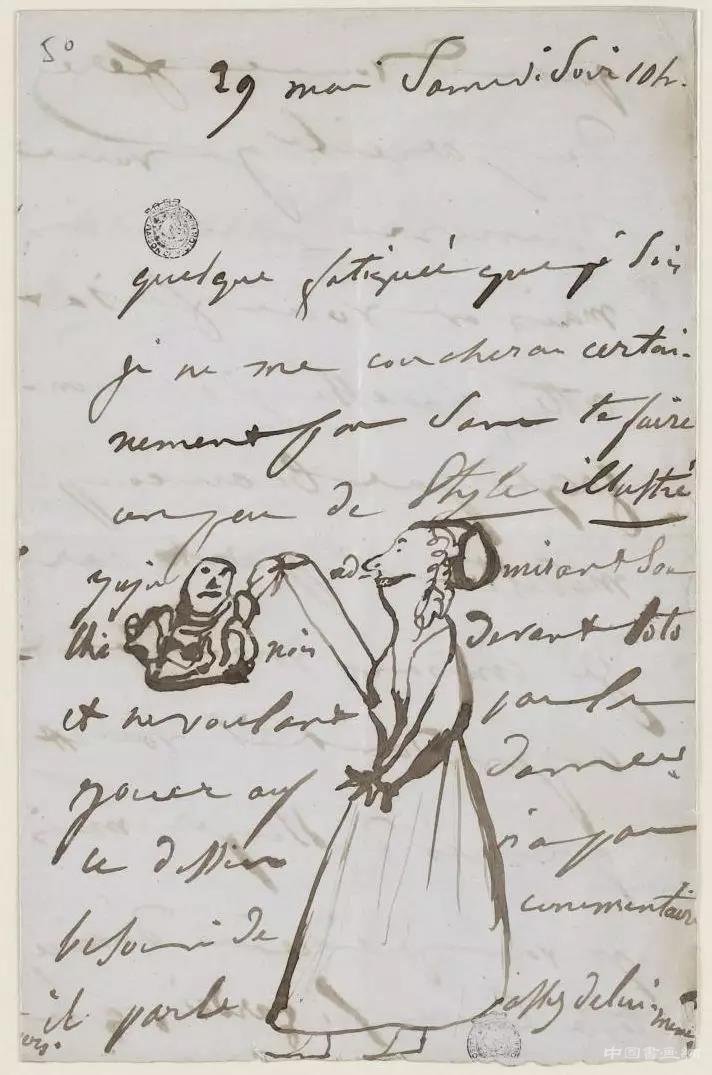 5°
29 mai Samedi Soir 10h.
quelque fatiguée que je sois
je ne me coucherai certai-
nement pas sans te faire
un peu de Style illustré
juju admirant son
chi nois devant toto
et ne voulant pas le
jouer aux dames.
ce dessin n'a pas
besoin de commentaire
il parle assez de lui-même